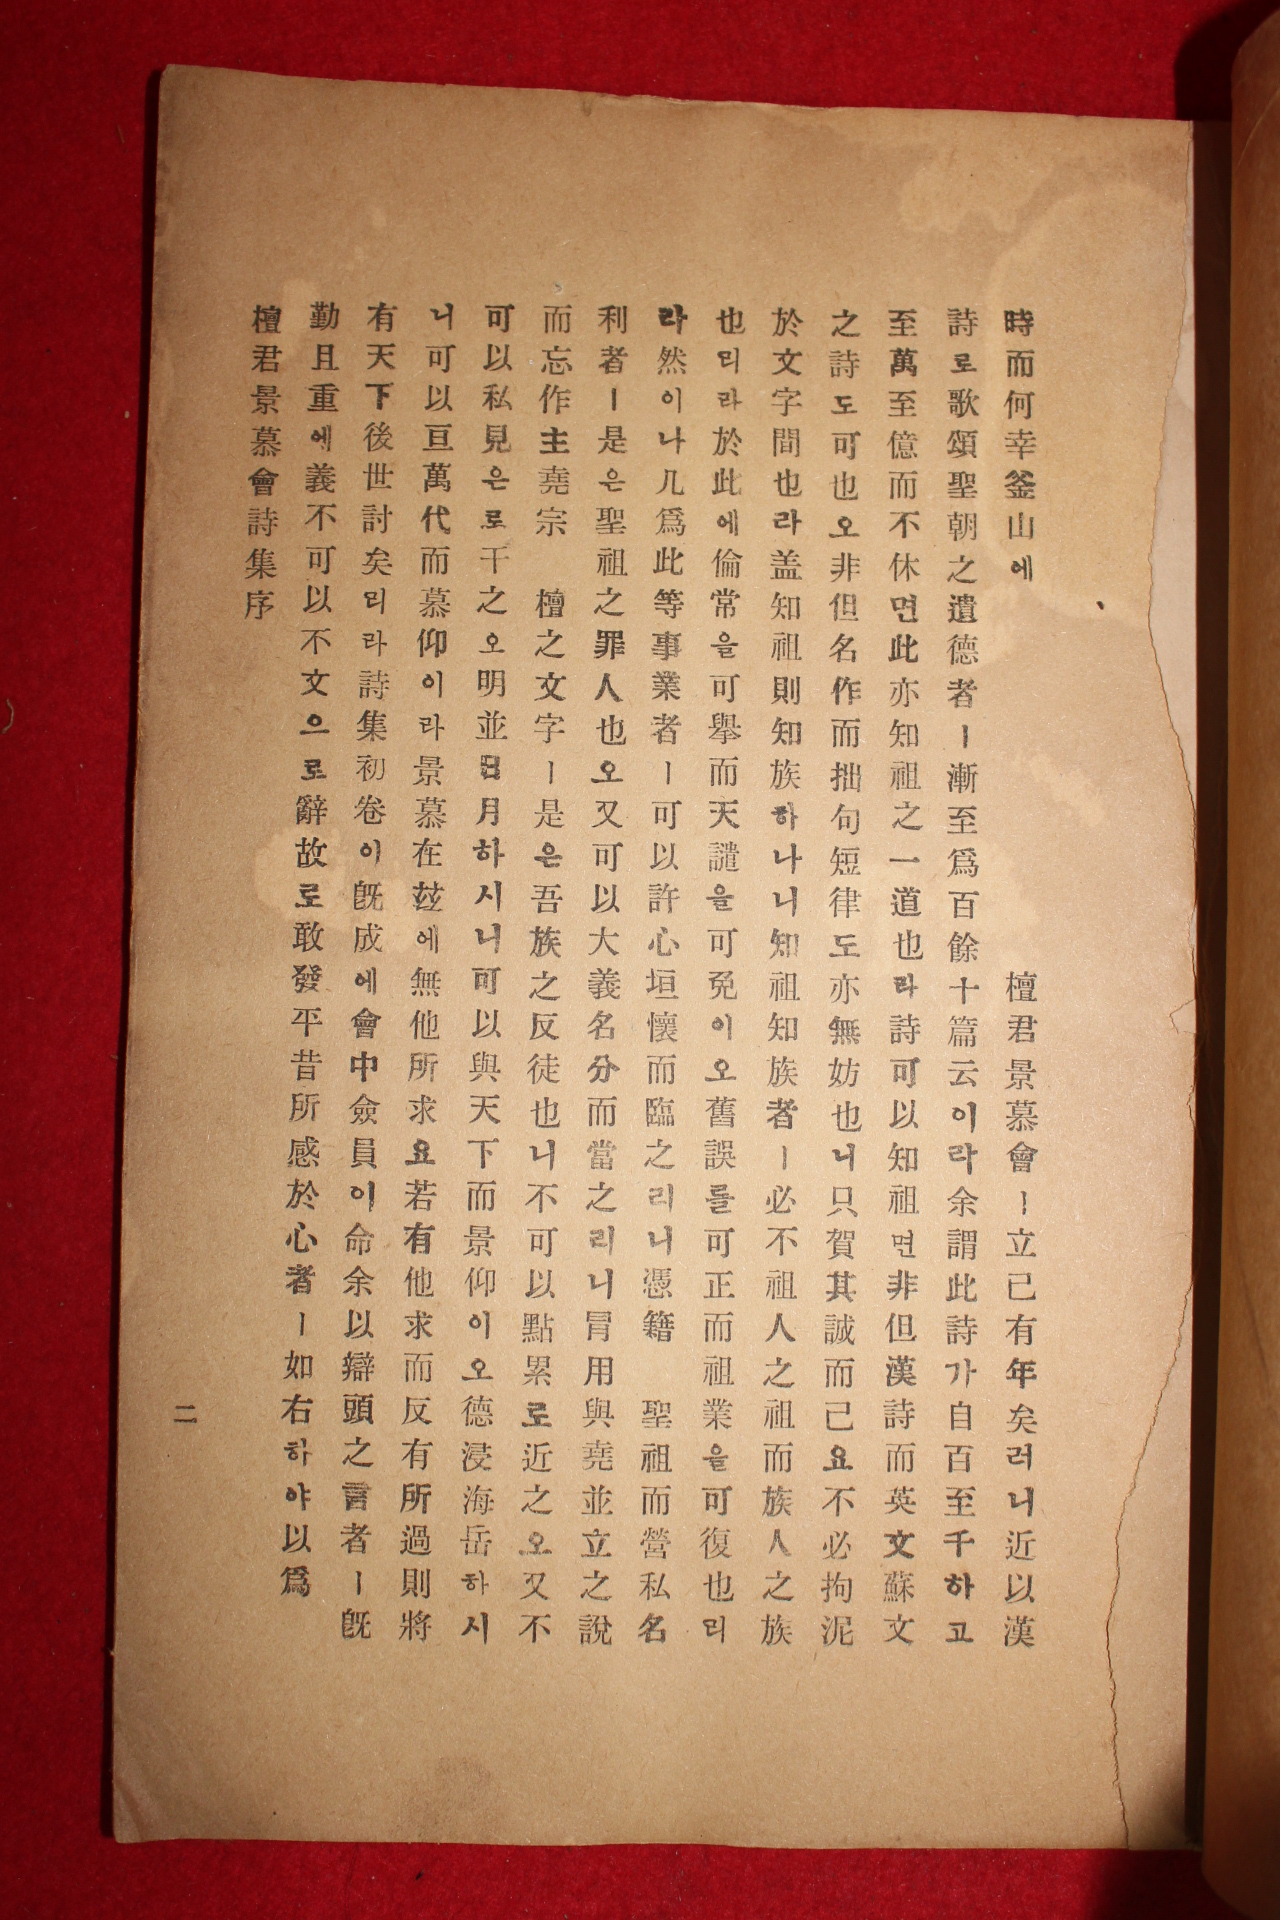 時而何幸釜山에 檀君景慕會ㅣ立已有年矣러니近以漢
詩로歌頌聖朝之遺德者ㅣ漸至爲百餘十篇云이라余謂此詩가自百至千하고
至萬至億而不休면此亦知祖之一道也라詩可以知祖면非但漢詩而英文蘇文
之詩도可也오非但名作而拙句短律도亦無妨也니只賀其誠而已요不必拘泥
於文字間也라盖知祖則知族하나니知祖知族者ㅣ必不祖人之祖而族人之族
也리라於此에倫常을可擧而天譴을可免이오舊誤를可正而祖業을可復也리
라然이나凡爲此等事業者ㅣ可以許心垣懷而臨之리니憑籍 聖祖而營私名
利者ㅣ是은聖祖之罪人也오又可以大義名分而當之리니冒用與堯並立之說
而忘作主堯宗 檀之文字ㅣ是은吾族之反徒也니不可以點累로近之오又不
可以私見은로干之오明並日月하시니可以與天下而景仰이오德浸海岳하시
니可以亘萬代而慕仰이라景慕在玆에無他所求요若有他求而反有所過則將
有天下後世討矣리라詩集初卷이旣成에會中僉員이命余以辯頭之言者ㅣ旣
勤且重에義不可以不文으로辭故로敢發平昔所感於心者ㅣ如右하야以爲
檀君景慕會詩集序
二